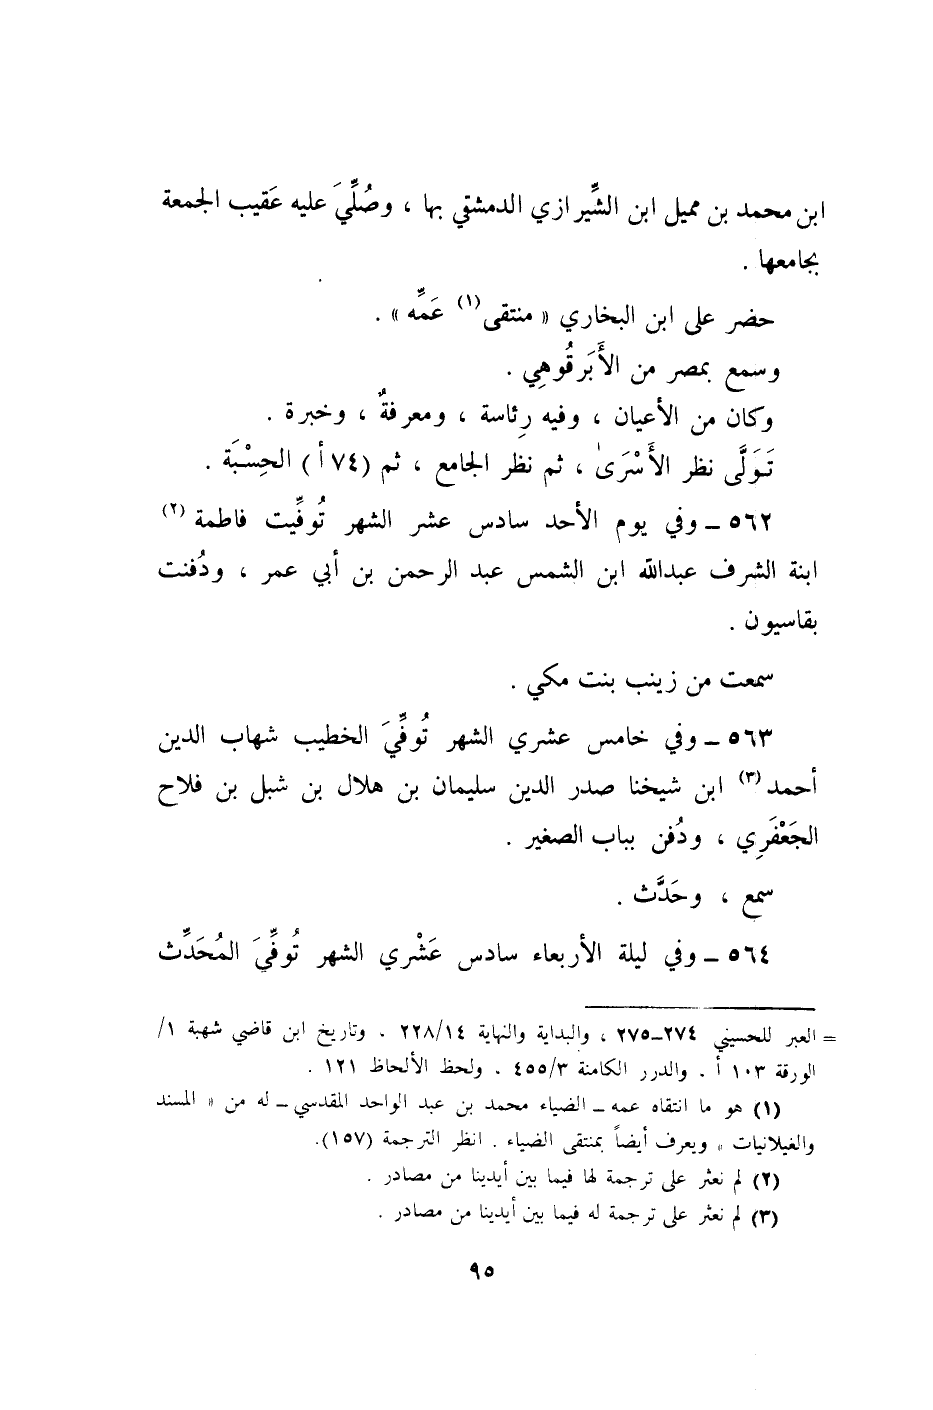 ابن محمد بن مميل ابن الشِّيرازي الدمشقي بها ، وصُلِّيَ عليه عَقيب الجمعة
بجامعها .
حضر على ابن البخاري « منتقى(١) عَمِّه » .
وسمع بمصر من الأَبَرقُوهِي .
وكان من الأعيان ، وفيه رِئاسة ، ومعرفةٌ ، وخبرة .
تَوَلَّى نظر الأَسْرَىٰ ، ثم نظر الجامع ، ثم (٧٤ أ) الحِسْبَة .
٥٦٢ ــ وفي يوم الأحد سادس عشر الشهر تُوفِّيت فاطمة(٢)
ابنة الشرف عبدالله ابن الشمس عبد الرحمن بن أبي عمر ، ودُفنت
بقاسيون .
سمعت من زينب بنت مكي .
٥٦٣ ــ وفي خامس عشري الشهر تُوفِّيَ الخطيب شهاب الدين
أحمد(٣) ابن شيخنا صدر الدين سليمان بن هلال بن شبل بن فلاح
الجَعْفَرِي ، ودُفن بباب الصغير .
سمع ، وحَدَّث .
٥٦٤ ــ وفي ليلة الأربعاء سادس عَشْري الشهر تُوفِّيَ المُحَدِّث
= العبر للحسيني ٢٧٤ــ٢٧٥ ، والبداية والنهاية ٢٢٨/١٤ . وتاريخ ابن قاضي شهبة ١/
الورقة ١٠٣ أ . والدرر الكامنة ٤٥٥/٣ . ولحظ الألحاظ ١٢١ .
(١) هو ما انتقاه عمه ــ الضياء محمد بن عبد الواحد المقدسي ــ له من « المسند
والغيلانيات » ويعرف أيضاً بمنتقى الضياء . انظر الترجمة (١٥٧).
(٢) لم نعثر على ترجمة لها فيما بين أيدينا من مصادر .
(٣) لم نعثر على ترجمة له فيما بين أيدينا من مصادر .
٩٥